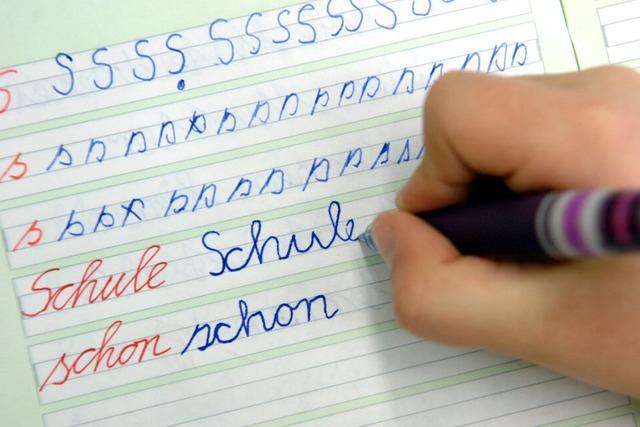 S S S S S S S S S S S S S
s s s s s s s s s s s s s s s s s
s s s s s s s s s s s s s
Schule Schule
schon schon